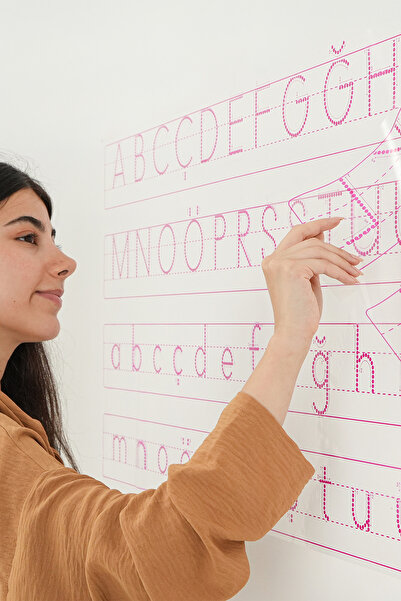 A B C Ç D E F G Ğ H
M N O Ö P R S Ş T U
a b c ç d e f g ğ h
m n o ö t u ü